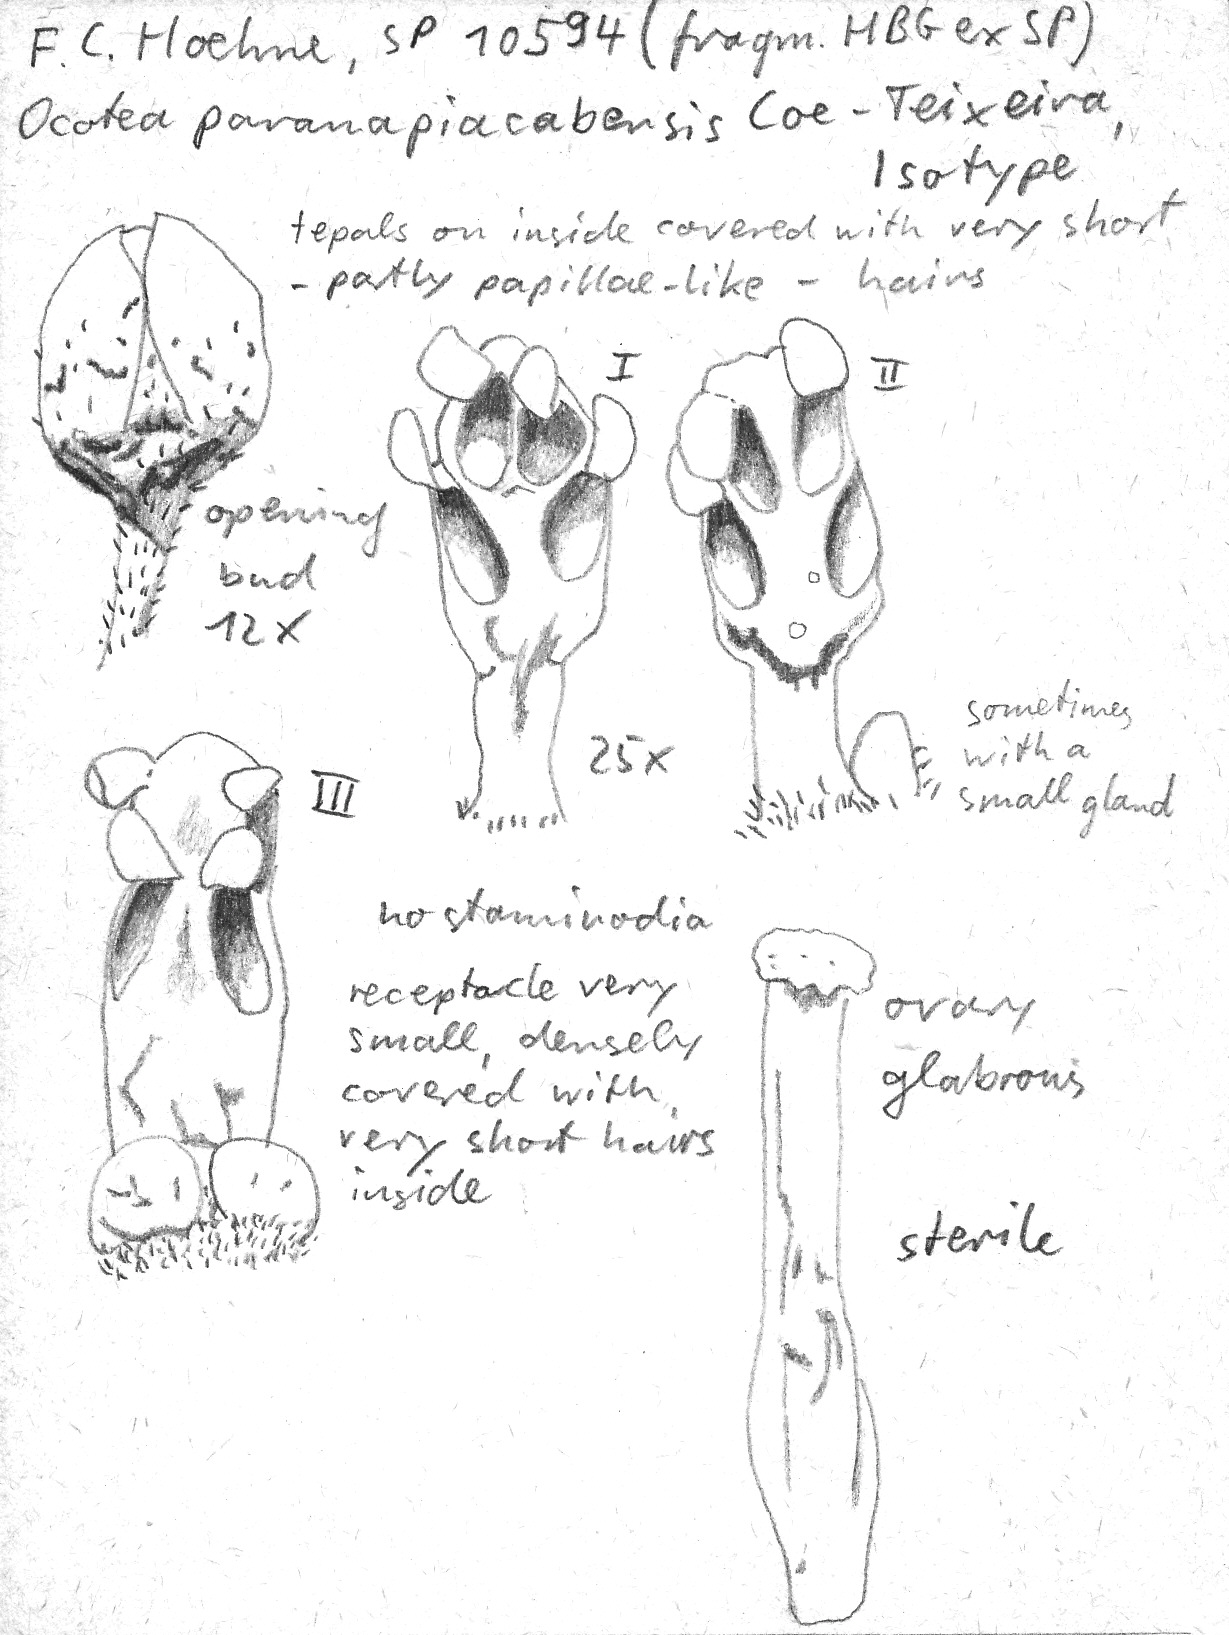 F. C. Hoehne, SP 10594 (fragm. HBG ex SP)
Ocotea paranapiacabensis Coe-Teixeira,
Isotype
tepals on inside covered with very short
- partly papillae-like - hairs
I
II
opening
bud
12x
25x
sometimes
with a
small gland
III
no staminodia
receptacle very
small, densely
covered with
very short hairs
inside
ovary
glabrous
sterile